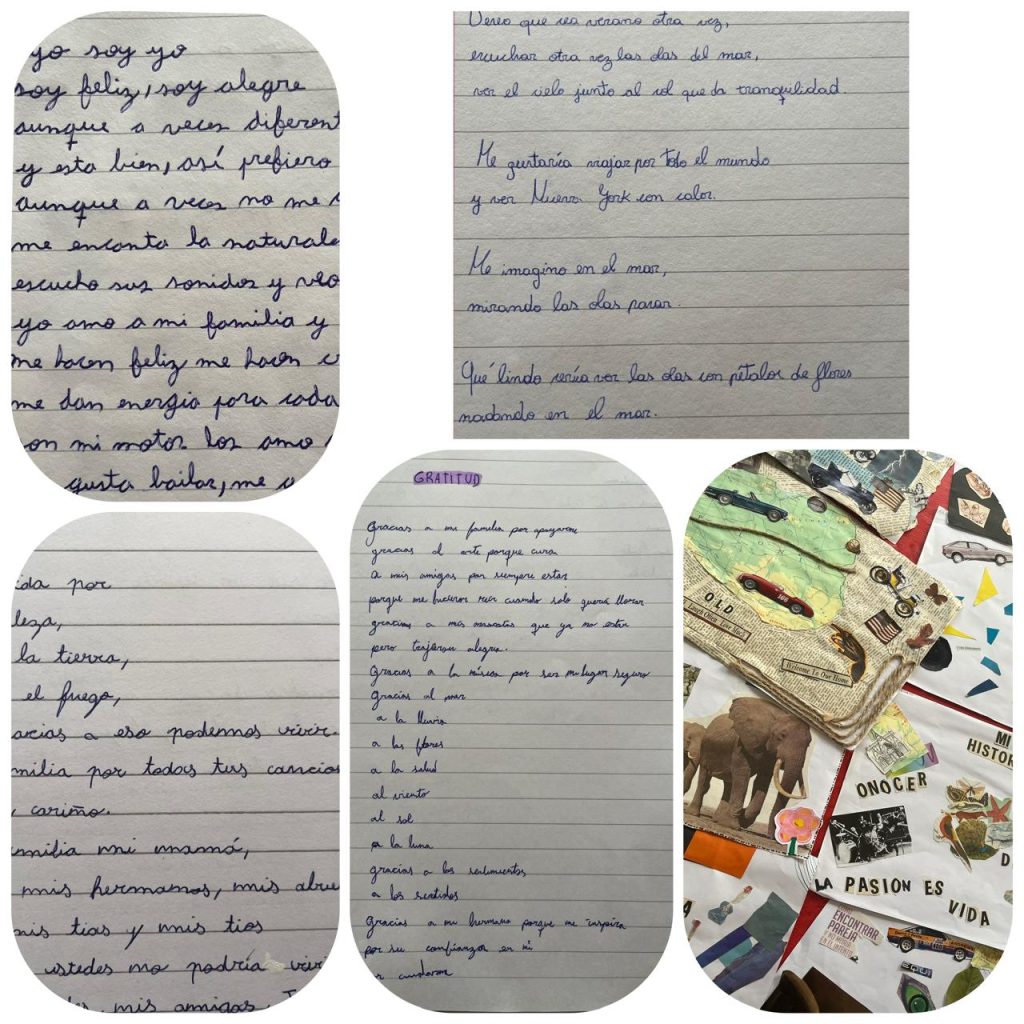 yo soy yo
soy feliz, soy alegre
aunque a veces diferent
y esta bien, así prefiero
aunque a veces no me
me encanta la naturale
escucho sus sonidos y veo
yo amo a mi familia y
me hacen feliz me hacen
me dan energia para cada
son mi motor los amo
gusta bailar, me
Deseo que sea verano otra vez,
escuchar otra vez las olas del mar,
ver el cielo junto al sol que da tranquilidad.
Me gustaría viajar por todo el mundo
y ver Nueva York con calor.
Me imagino en el mar,
mirando las olas pasar.
Qué lindo sería ver las olas con pétalos de flores
nadando en el mar.
ida por
leza,
la tierra,
el fuego,
racias a eso podemos vivir.
milia por todos tus
y cariño.
amilia mi mamá,
mis hermanos, mis abue
mis tias y mis tios
ustedes no podría vivi
mis amigas,
GRATITUD
Gracias a mi familia por apoyarme
gracias al arte porque cura
a mis amigas por siempre estar
porque me hicieron reir cuando solo quería llorar
gracias a mis mascotas que ya no están
pero trajeron alegria.
Gracias a la música por ser mi lugar seguro
Gracias al mar
a la lluvia
a las flores
a la salud
al viento
al sol
a la luna
gracias a los sentimientos
a los sentidos
Gracias a mi hermano porque me inspira
por su confianza en mi
cuidarme
OLD
Laugh Often Love Much
Welcome To Our Home
MI
HISTOR
ONOCER
D
LA PASION ES
VIDA
ENCONTRAR
PAREJA